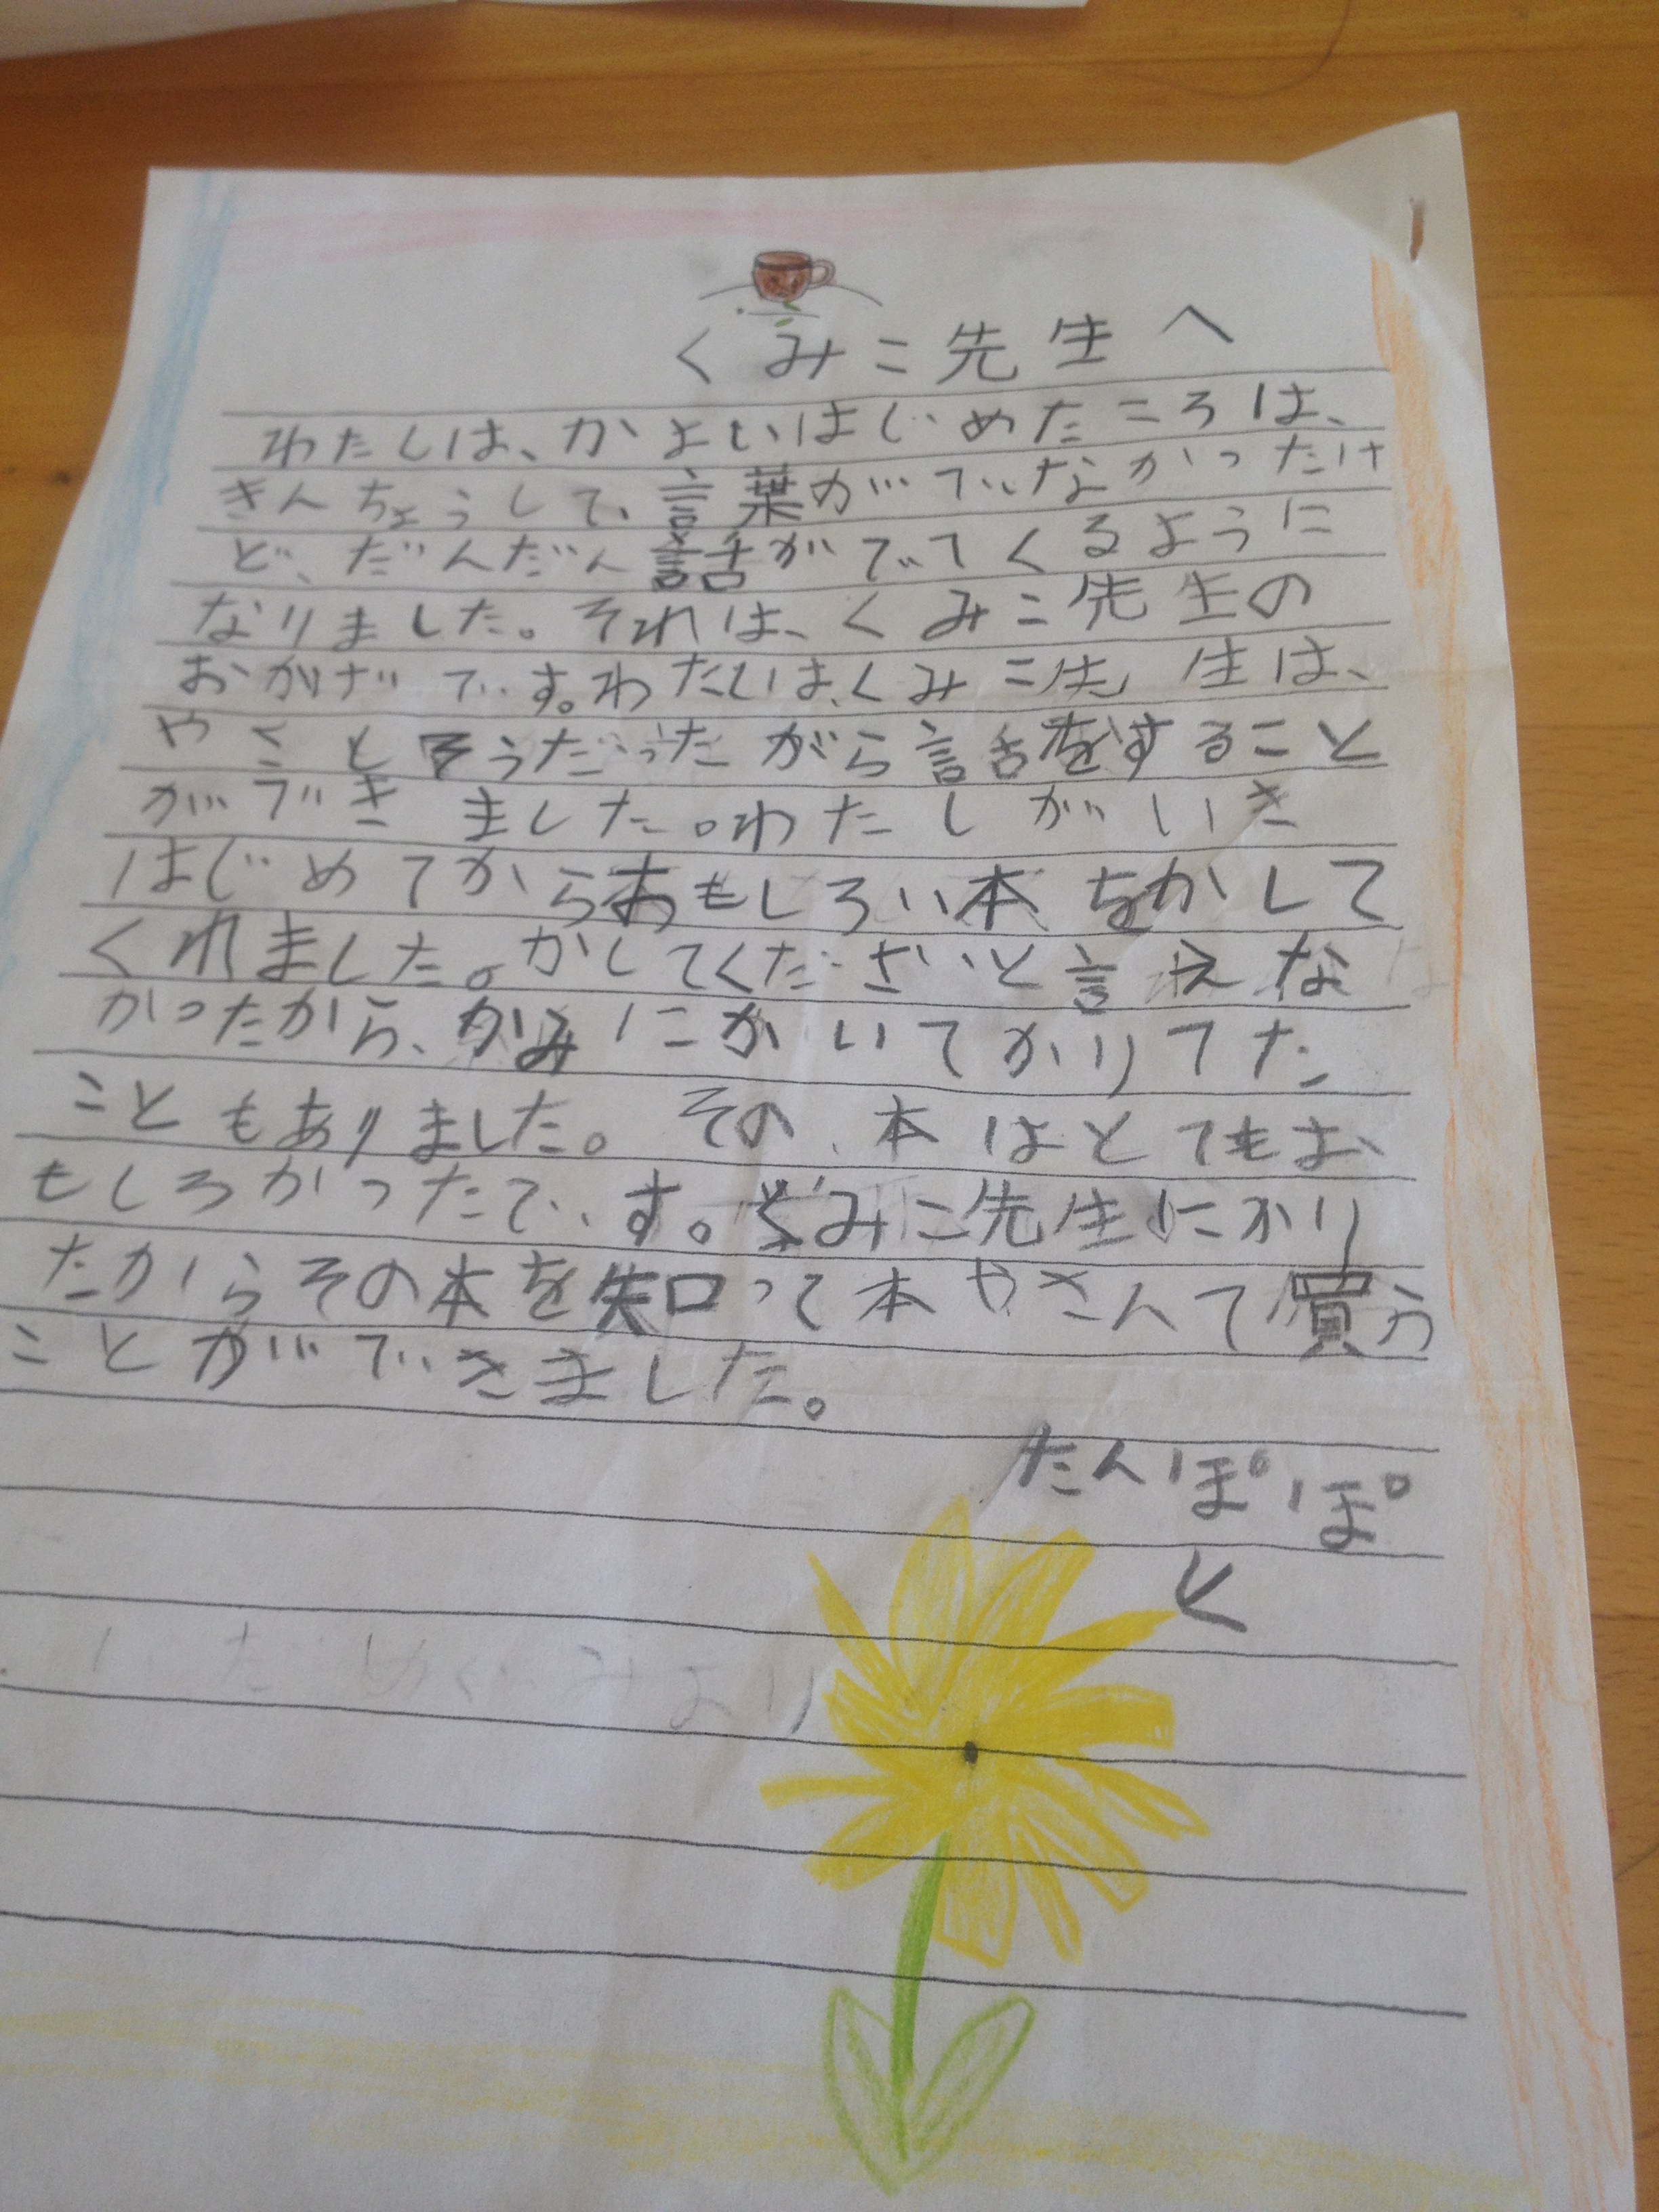 くみこ先生へ
わたしは、かよいはじめたころは、
きんちょうして、言葉がでなかったけ
ど、だんだん話がでてくるように
なりました。それは、くみこ先生の
おかげです。わたしは、くみこ先生は、
やくとそうだったがら話をすること
ができました。わたしがいき
はじめてからおもしろい本をかして
くれました。かしてくださいと言えな
かったから、かみにかいてかりてた
こともありました。その、本はとてもお
もしろかったです。くみこ先生にかり
たからその本を知って本やさんで買う
ことができました。
たんぽぽ
めぐみより